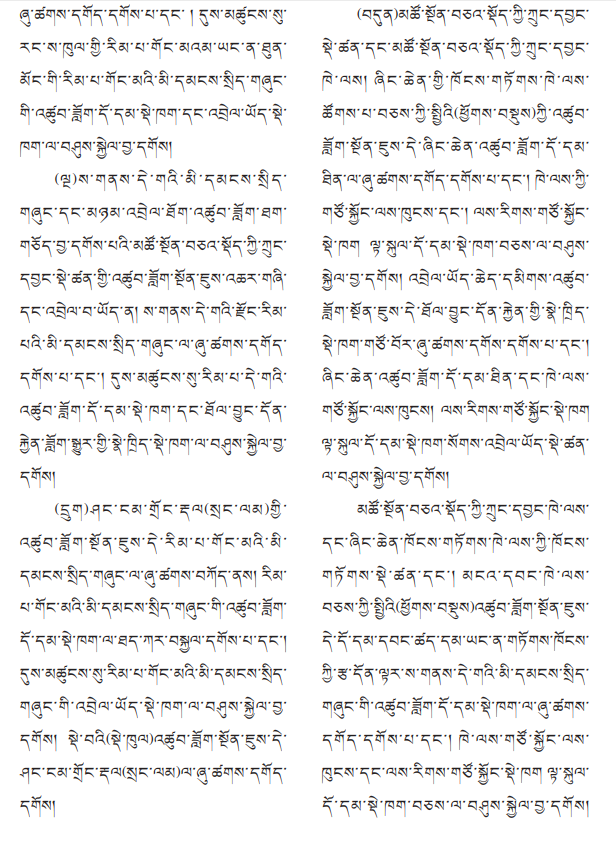 ཞུ་ཚགས་དགོད་དགོས་པ་དང་། དུས་མཚུངས་སུ་
རང་ས་ཁུལ་གྱི་རིམ་པ་གོང་མའམ་ཡང་ན་ཐུན་
མོང་གི་རིམ་པ་གོང་མའི་མི་དམངས་སྲིད་གཞུང་
གི་འཚུབ་ཟློག་དོ་དམ་སྡེ་ཁག་དང་འབྲེལ་ཡོད་སྡེ་
ཁག་ལ་བཤུས་སྐྱེལ་བྱ་དགོས།
(ལྔ)ས་གནས་དེ་གའི་མི་དམངས་སྲིད་
གཞུང་དང་མཉམ་འབྲེལ་ཐོག་འཚུབ་ཟློག་ཐག་
གཅོད་བྱ་དགོས་པའི་མཚོ་སྔོན་བཅའ་སྡོད་ཀྱི་ཀྲུང་
དབྱང་སྡེ་ཚན་གྱི་འཚུབ་ཟློག་སྔོན་ཇུས་འཆར་གཞི་
དང་འབྲེལ་བ་ཡོད་ན། ས་གནས་དེ་གའི་རྫོང་རིམ་
པའི་མི་དམངས་སྲིད་གཞུང་ལ་ཞུ་ཚགས་དགོད་
དགོས་པ་དང་། དུས་མཚུངས་སུ་རིམ་པ་དེ་གའི་
འཚུབ་ཟློག་དོ་དམ་སྡེ་ཁག་དང་ཐོལ་བྱུང་དོན་
རྐྱེན་ཟློག་སྒྱུར་གྱི་སྣེ་ཁྲིད་སྡེ་ཁག་ལ་བཤུས་སྐྱེལ་བྱ་
དགོས།
(དྲུག)ཤང་ངམ་གྲོང་རྡལ(སྲང་ལམ)གྱི་
འཚུབ་ཟློག་སྔོན་ཇུས་དེ་རིམ་པ་གོང་མའི་མི་
དམངས་སྲིད་གཞུང་ལ་ཞུ་ཚགས་བཀོད་ནས། རིམ་
པ་གོང་མའི་མི་དམངས་སྲིད་གཞུང་གི་འཚུབ་ཟློག་
དོ་དམ་སྡེ་ཁག་ལ་ཐད་ཀར་བསྐྱལ་དགོས་པ་དང་།
དུས་མཚུངས་སུ་རིམ་པ་གོང་མའི་མི་དམངས་སྲིད་
གཞུང་གི་འབྲེལ་ཡོད་སྡེ་ཁག་ལ་བཤུས་སྐྱེལ་བྱ་
དགོས། སྡེ་བའི(སྡེ་ཁུལ)འཚུབ་ཟློག་སྔོན་ཇུས་དེ་
ཤང་ངམ་གྲོང་རྡལ(སྲང་ལམ)ལ་ཞུ་ཚགས་དགོད་
དགོས།
(བདུན)མཚོ་སྔོན་བཅའ་སྡོད་ཀྱི་ཀྲུང་དབྱང་
སྡེ་ཚན་དང་མཚོ་སྔོན་བཅའ་སྡོད་ཀྱི་ཀྲུང་དབྱང་
ཁེ་ལས། ཞིང་ཆེན་གྱི་ཁོངས་གཏོགས་ཁེ་ལས་
ཚོགས་པ་བཅས་ཀྱི་སྤྱིའི(ཕྱོགས་བསྡུས)ཀྱི་འཚུབ་
ཟློག་སྔོན་ཇུས་དེ་ཞིང་ཆེན་འཚུབ་ཟློག་དོ་དམ་
ཐིན་ལ་ཞུ་ཚགས་དགོད་དགོས་པ་དང་། ཁེ་ལས་ཀྱི་
གཙོ་སྐྱོང་ལས་ཁུངས་དང་། ལས་རིགས་གཙོ་སྐྱོང་
སྡེ་ཁག ལྟ་སྐུལ་དོ་དམ་སྡེ་ཁག་བཅས་ལ་བཤུས་
སྐྱེལ་བྱ་དགོས། འབྲེལ་ཡོད་ཆེད་དམིགས་འཚུབ་
ཟློག་སྔོན་ཇུས་དེ་ཐོལ་བྱུང་དོན་རྐྱེན་གྱི་སྣེ་ཁྲིད་
སྡེ་ཁག་གཙོ་བོར་ཞུ་ཚགས་དགོས་དགོས་པ་དང་།
ཞིང་ཆེན་འཚུབ་ཟློག་དོ་དམ་ཐིན་དང་ཁེ་ལས་
གཙོ་སྐྱོང་ལས་ཁུངས། ལས་རིགས་གཙོ་སྐྱོང་སྡེ་ཁག
ལྟ་སྐུལ་དོ་དམ་སྡེ་ཁག་སོགས་འབྲེལ་ཡོད་སྡེ་ཚན་
ལ་བཤུས་སྐྱེལ་བྱ་དགོས།
མཚོ་སྔོན་བཅའ་སྡོད་ཀྱི་ཀྲུང་དབྱང་ཁེ་ལས་
དང་ཞིང་ཆེན་ཁོངས་གཏོགས་ཁེ་ལས་ཀྱི་ཁོངས་
གཏོགས་སྡེ་ཚན་དང་། མངའ་དབང་ཁེ་ལས་
བཅས་ཀྱི་སྤྱིའི(ཕྱོགས་བསྡུས)འཚུབ་ཟློག་སྔོན་ཇུས་
དེ་དོ་དམ་དབང་ཚད་དམ་ཡང་ན་གཏོགས་ཁོངས་
ཀྱི་རྩ་དོན་ལྟར་ས་གནས་དེ་གའི་མི་དམངས་སྲིད་
གཞུང་གི་འཚུབ་ཟློག་དོ་དམ་སྡེ་ཁག་ལ་ཞུ་ཚགས་
དགོད་དགོས་པ་དང་། ཁེ་ལས་གཙོ་སྐྱོང་ལས་
ཁུངས་དང་ལས་རིགས་གཙོ་སྐྱོང་སྡེ་ཁག ལྟ་སྐུལ་
དོ་དམ་སྡེ་ཁག་བཅས་ལ་བཤུས་སྐྱེལ་བྱ་དགོས།